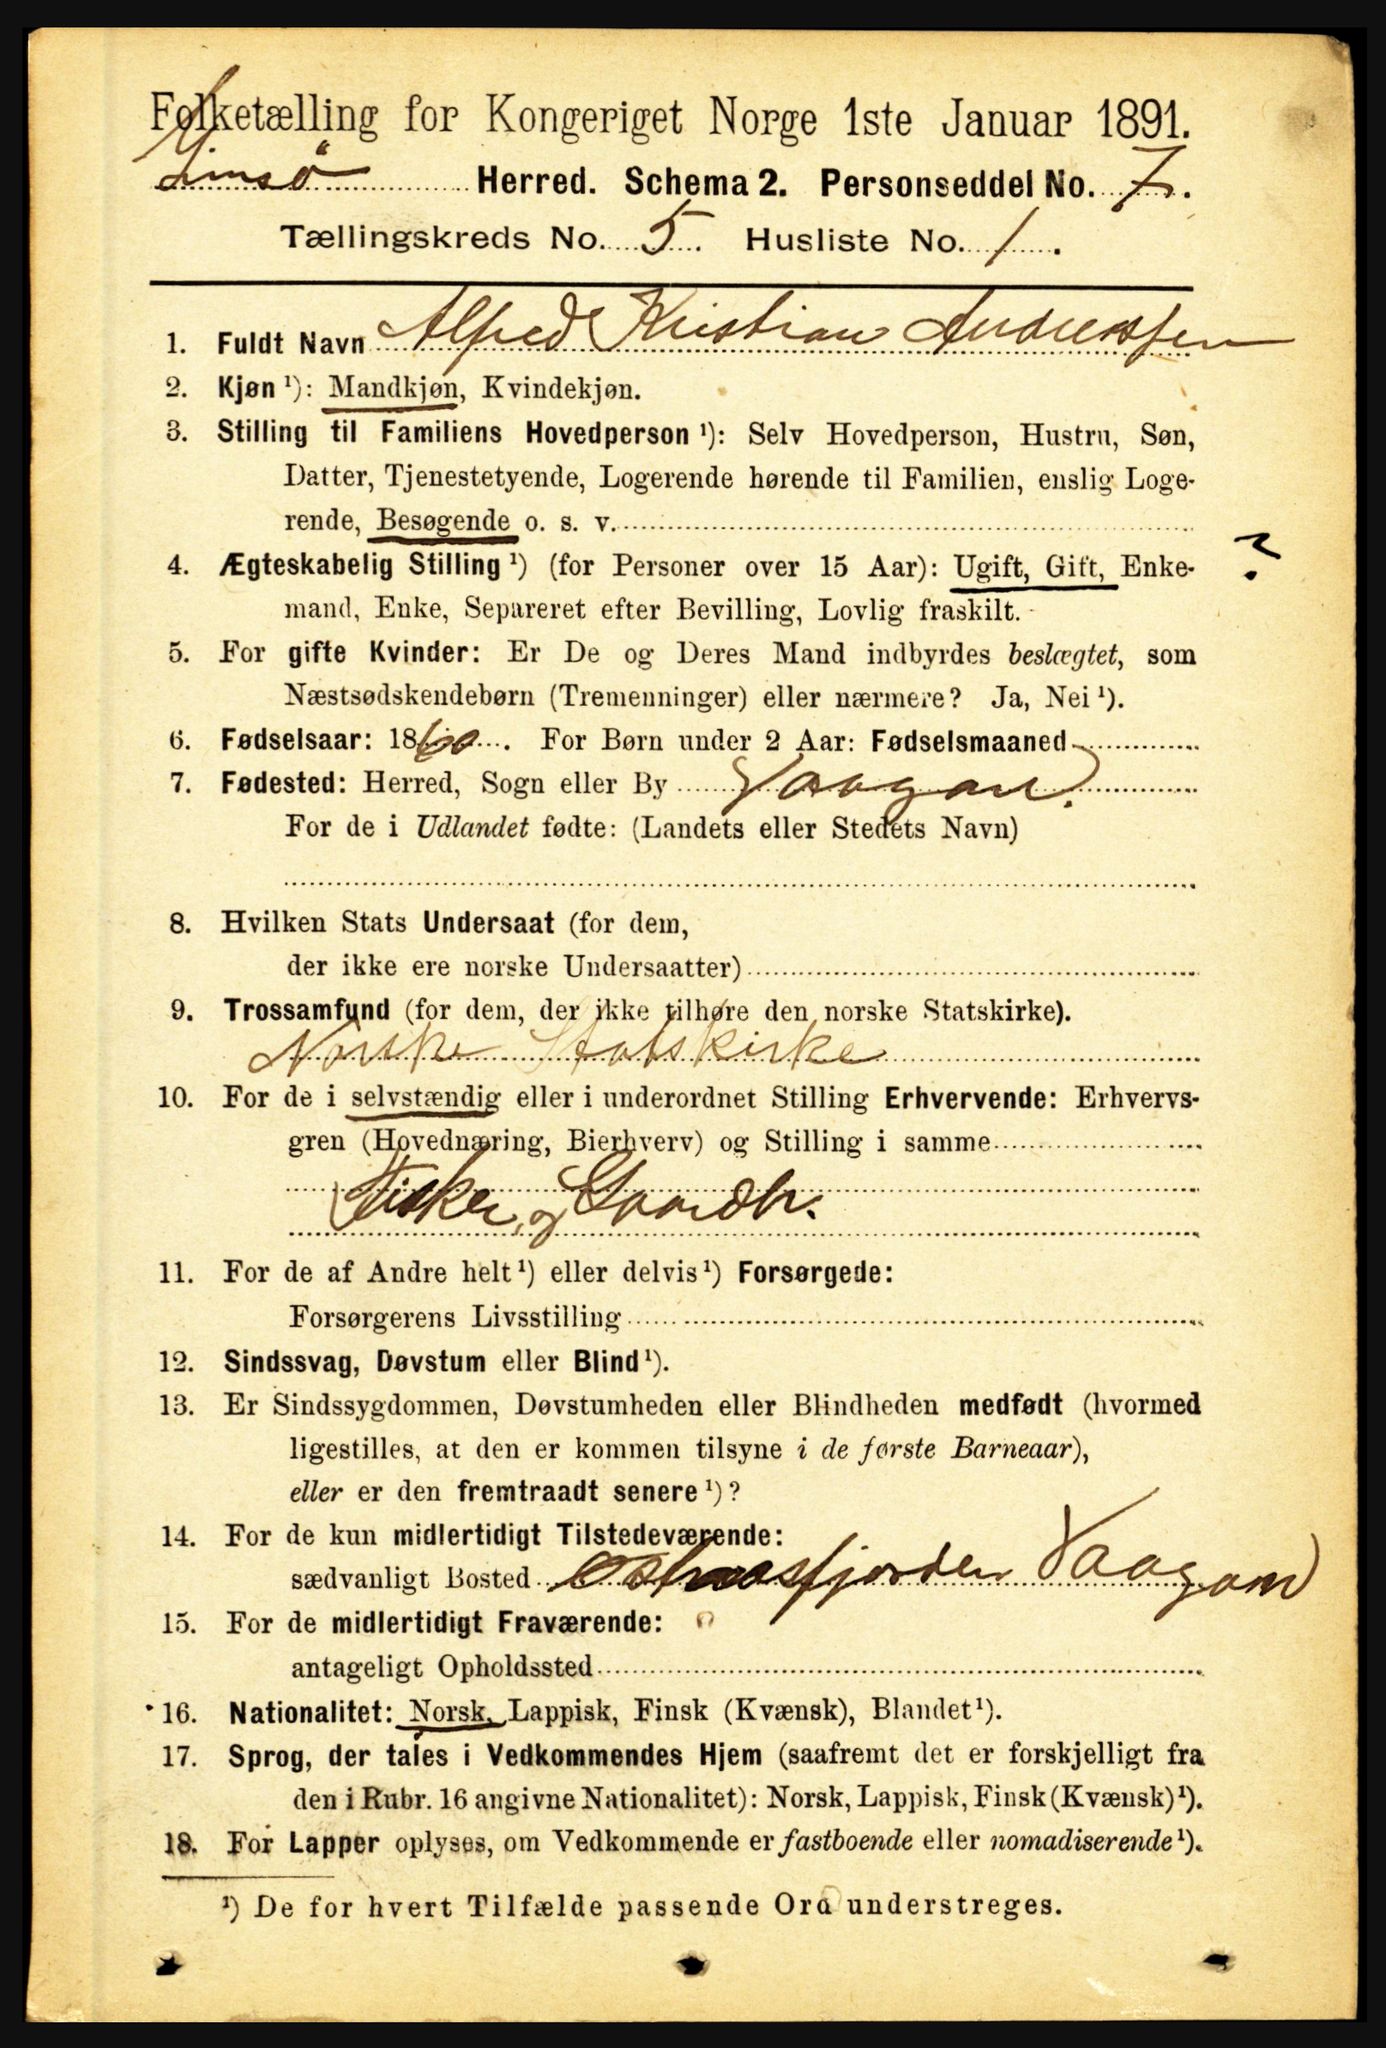 Folketælling for Kongeriget Norge 1ste Januar 1891.
Gimsø Herred. Schema 2. Personseddel No. 7.
Tællingskreds No. 5. Husliste No. 1.
1. Fuldt Navn Alfred Kristian Andreassen
2. Kjøn ¹): Mandkjøn, Kvindekjøn.
3. Stilling til Familiens Hovedperson ¹): Selv Hovedperson, Hustru, Søn,
Datter, Tjenestetyende, Logerende hørende til Familien, enslig Loge-
rende, Besøgende o. s. v.
4. Ægteskabelig Stilling ¹) (for Personer over 15 Aar): Ugift, Gift, Enke- ?
mand, Enke, Separeret efter Bevilling, Lovlig fraskilt.
5. For gifte Kvinder: Er De og Deres Mand indbyrdes beslægtet, som
Næstsødskendebørn (Tremenninger) eller nærmere? Ja, Nei ¹).
6. Fødselsaar: 1860. For Børn under 2 Aar: Fødselsmaaned
7. Fødested: Herred, Sogn eller By Vaagan.
For de i Udlandet fødte: (Landets eller Stedets Navn)
8. Hvilken Stats Undersaat (for dem,
der ikke ere norske Undersaatter)
9. Trossamfund (for dem, der ikke tilhøre den norske Statskirke).
Norske Statskirke
10. For de i selvstændig eller i underordnet Stilling Erhvervende: Erhvervs-
gren (Hovednæring, Bierhverv) og Stilling i samme
Fisker og Gaardb.
11. For de af Andre helt ¹) eller delvis ¹) Forsørgede:
Forsørgerens Livsstilling
12. Sindssvag, Døvstum eller Blind ¹).
13. Er Sindssygdommen, Døvstumheden eller Blindheden medfødt (hvormed
ligestilles, at den er kommen tilsyne i de første Barneaar),
eller er den fremtraadt senere ¹)?
14. For de kun midlertidigt Tilstedeværende:
sædvanligt Bosted Østnesfjorden Vaagan
15. For de midlertidigt Fraværende:
antageligt Opholdssted
16. Nationalitet: Norsk, Lappisk, Finsk (Kvænsk), Blandet ¹).
17. Sprog, der tales i Vedkommendes Hjem (saafremt det er forskjelligt fra
den i Rubr. 16 angivne Nationalitet): Norsk, Lappisk, Finsk (Kvænsk) ¹).
18. For Lapper oplyses, om Vedkommende er fastboende eller nomadiserende ¹).
¹) De for hvert Tilfælde passende Ord understreges.